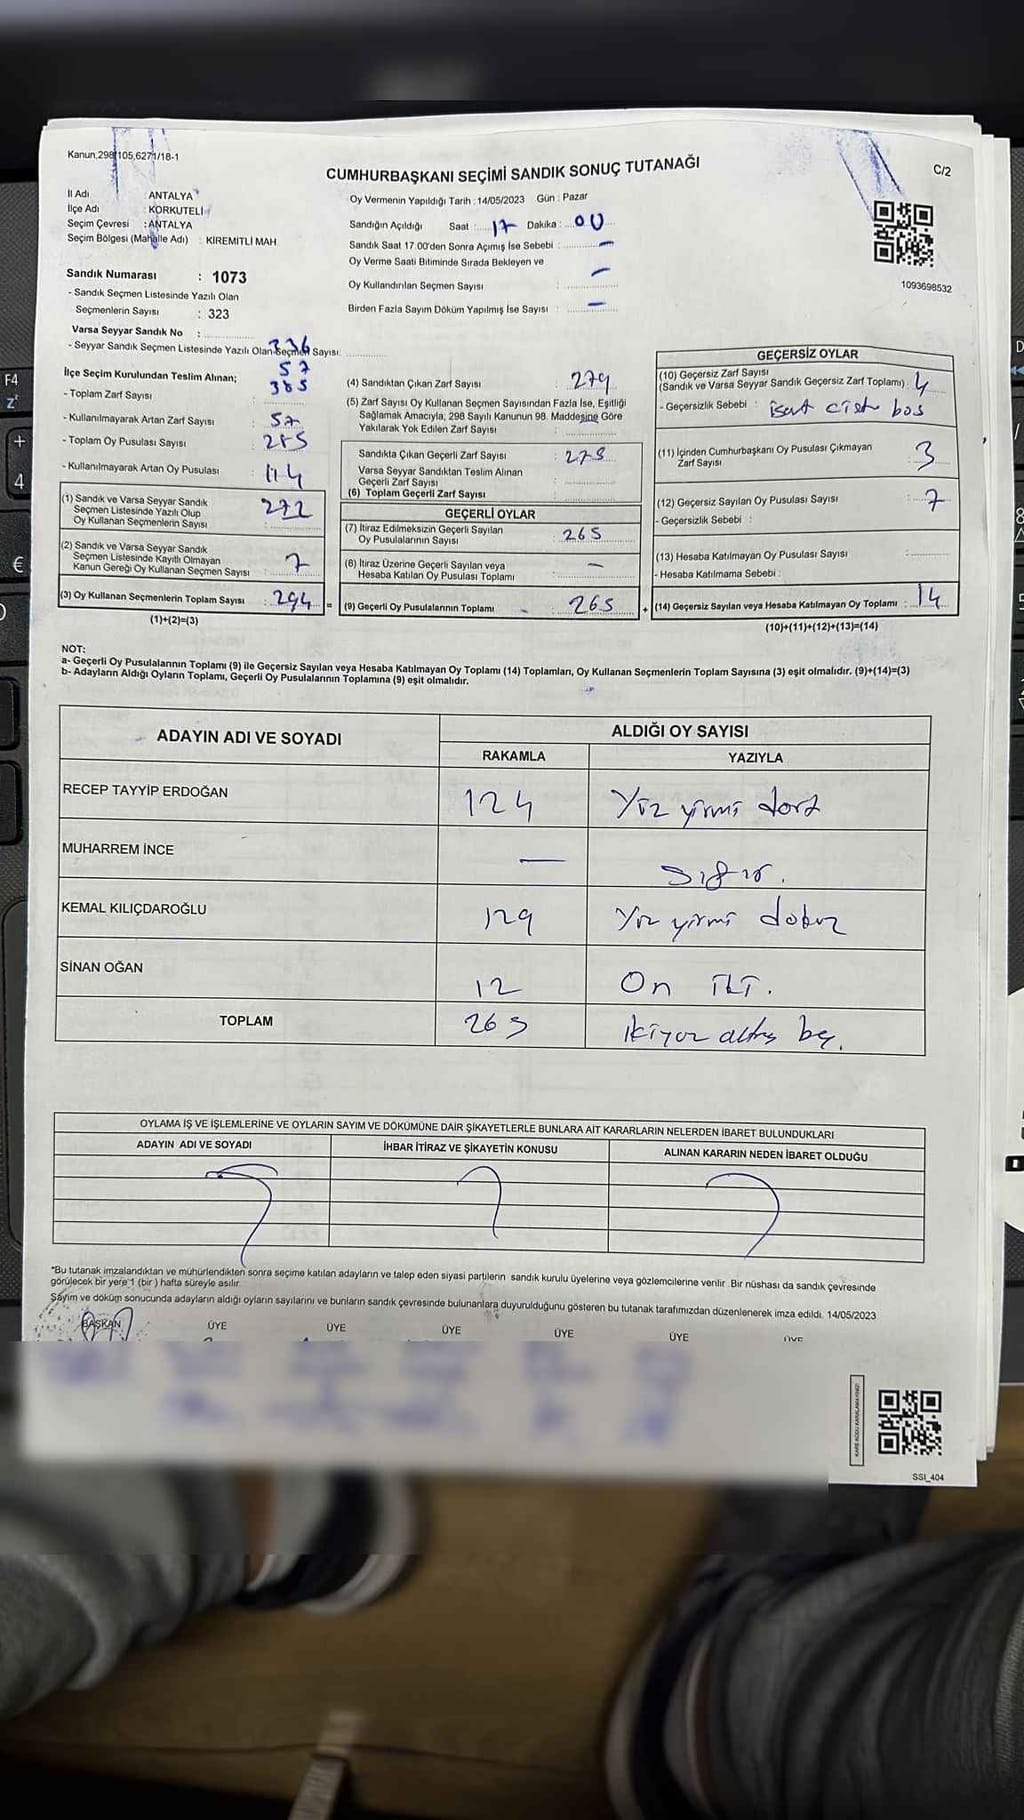 Kanun,298,105,6271/18-1
CUMHURBAŞKANI SEÇİMİ SANDIK SONUÇ TUTANAĞI
C/2
İl Adı : ANTALYA
İlçe Adı : KORKUTELİ
Seçim Çevresi : ANTALYA
Seçim Bölgesi (Mahalle Adı) : KİREMİTLİ MAH.
Sandık Numarası : 1073
- Sandık Seçmen Listesinde Yazılı Olan
Seçmenlerin Sayısı : 323
Varsa Seyyar Sandık No :
- Seyyar Sandık Seçmen Listesinde Yazılı Olan Seçmen Sayısı:
336
Oy Vermenin Yapıldığı Tarih : 14/05/2023 Gün : Pazar
Sandığın Açıldığı Saat : 17 Dakika : 00
Sandık Saat 17.00'den Sonra Açımış İse Sebebi : –
Oy Verme Saati Bitiminde Sırada Bekleyen ve
Oy Kullandırılan Seçmen Sayısı : –
Birden Fazla Sayım Döküm Yapılmış İse Sayısı : –
1093698532
İlçe Seçim Kurulundan Teslim Alınan;
57
385
- Toplam Zarf Sayısı :
- Kullanılmayarak Artan Zarf Sayısı : 57
- Toplam Oy Pusulası Sayısı : 285
- Kullanılmayarak Artan Oy Pusulası : 114
(1) Sandık ve Varsa Seyyar Sandık
Seçmen Listesinde Yazılı Olup
Oy Kullanan Seçmenlerin Sayısı : 272
(2) Sandık ve Varsa Seyyar Sandık
Seçmen Listesinde Kayıtlı Olmayan
Kanun Gereği Oy Kullanan Seçmen Sayısı : 7
(3) Oy Kullanan Seçmenlerin Toplam Sayısı : 294
(1)+(2)=(3)
(4) Sandıktan Çıkan Zarf Sayısı : 279
(5) Zarf Sayısı Oy Kullanan Seçmen Sayısından Fazla İse, Eşitliği
Sağlamak Amacıyla; 298 Sayılı Kanunun 98. Maddesine Göre
Yakılarak Yok Edilen Zarf Sayısı :
Sandıkta Çıkan Geçerli Zarf Sayısı : 275
Varsa Seyyar Sandıktan Teslim Alınan
Geçerli Zarf Sayısı :
(6) Toplam Geçerli Zarf Sayısı :
GEÇERLİ OYLAR
(7) İtiraz Edilmeksizin Geçerli Sayılan
Oy Pusulalarının Sayısı : 265
(8) İtiraz Üzerine Geçerli Sayılan veya
Hesaba Katılan Oy Pusulası Toplamı : –
= (9) Geçerli Oy Pusulalarının Toplamı : 265
GEÇERSİZ OYLAR
(10) Geçersiz Zarf Sayısı
(Sandık ve Varsa Seyyar Sandık Geçersiz Zarf Toplamı) : 4
- Geçersizlik Sebebi : boş
(11) İçinden Cumhurbaşkanı Oy Pusulası Çıkmayan
Zarf Sayısı : 3
(12) Geçersiz Sayılan Oy Pusulası Sayısı : 7
- Geçersizlik Sebebi :
(13) Hesaba Katılmayan Oy Pusulası Sayısı :
- Hesaba Katılmama Sebebi :
+ (14) Geçersiz Sayılan veya Hesaba Katılmayan Oy Toplamı : 14
(10)+(11)+(12)+(13)=(14)
NOT:
a- Geçerli Oy Pusulalarının Toplamı (9) ile Geçersiz Sayılan veya Hesaba Katılmayan Oy Toplamı (14) Toplamları, Oy Kullanan Seçmenlerin Toplam Sayısına (3) eşit olmalıdır. (9)+(14)=(3)
b- Adayların Aldığı Oyların Toplamı, Geçerli Oy Pusulalarının Toplamına (9) eşit olmalıdır.
ADAYIN ADI VE SOYADI ALDIĞI OY SAYISI
RAKAMLA YAZIYLA
RECEP TAYYİP ERDOĞAN 124 Yüz yirmi dört
MUHARREM İNCE — Sıfır.
KEMAL KILIÇDAROĞLU 129 Yüz yirmi dokuz
SİNAN OĞAN 12 On iki.
TOPLAM 265 ikiyüz altmış beş.
OYLAMA İŞ VE İŞLEMLERİNE VE OYLARIN SAYIM VE DÖKÜMÜNE DAİR ŞİKAYETLERLE BUNLARA AİT KARARLARIN NELERDEN İBARET BULUNDUKLARI
ADAYIN ADI VE SOYADI İHBAR İTİRAZ VE ŞİKAYETİN KONUSU ALINAN KARARIN NEDEN İBARET OLDUĞU
*Bu tutanak imzalandıktan ve mühürlendikten sonra seçime katılan adayların ve talep eden siyasi partilerin sandık kurulu üyelerine veya gözlemcilerine verilir. Bir nüshası da sandık çevresinde
görülecek bir yere 1 (bir) hafta süreyle asılır.
Sayım ve döküm sonucunda adayların aldığı oyların sayılarını ve bunların sandık çevresinde bulunanlara duyurulduğunu gösteren bu tutanak tarafımızdan düzenlenerek imza edildi. 14/05/2023
BAŞKAN ÜYE ÜYE ÜYE ÜYE ÜYE ÜYE
SSI_404